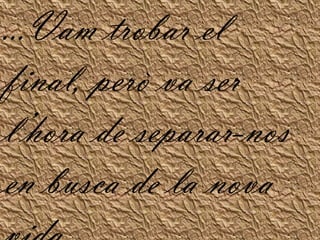 ...Vam trobar el
final, però va ser
l'hora de separar-nos
en busca de la nova
vida